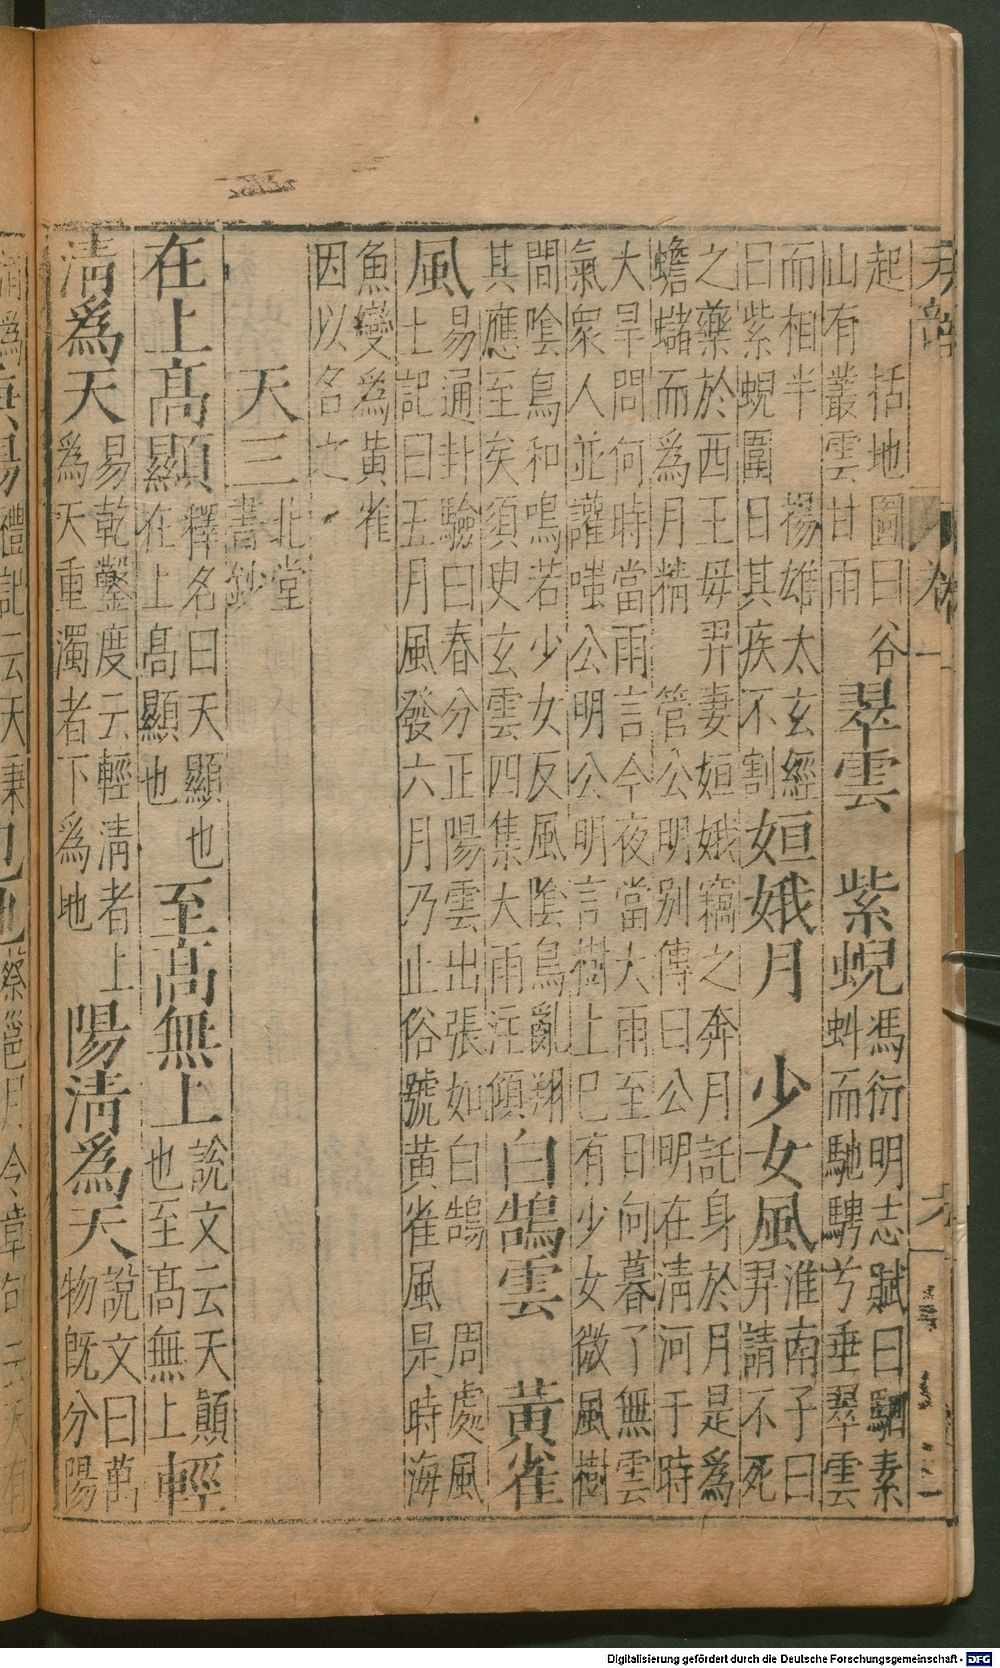 起　括地圖曰谷
山有叢雲甘雨
翠雲　紫蜺
馮衍明志賦曰駟素
虯而馳騁兮垂翠雲
而相半　揚雄太玄經
曰紫蜺圍日其疾不割
姮娥月　少女風
淮南子曰
羿請不死
之藥於西王母羿妻姮娥竊之奔月託身於月是為
蟾蠩而為月精　管公明別傳曰公明在清河于時
大旱問何時當雨言今夜當大雨至日向暮了無雲
氣眾人並讙嗤公明公明言樹上已有少女微風樹
間陰鳥和鳴若少女反風陰鳥亂翔
其應至矣須臾玄雲四集大雨注傾
白鵠雲　黃雀
風
易通卦驗曰春分正陽雲出張如白鵠　周處風
土記曰五月風發六月乃止俗號黃雀風是時海
魚變為黃雀
因以名之
天三
北堂
書鈔
在上高顯
釋名曰天顯也
在上高顯也
至高無上
說文云天顛
也至高無上
輕
清為天
易乾鑿度云輕清者上
為天重濁者下為地
陽清為天
說文曰萬
物既分陽
Digitalisierung gefördert durch die Deutsche Forschungsgemeinschaft - DFG